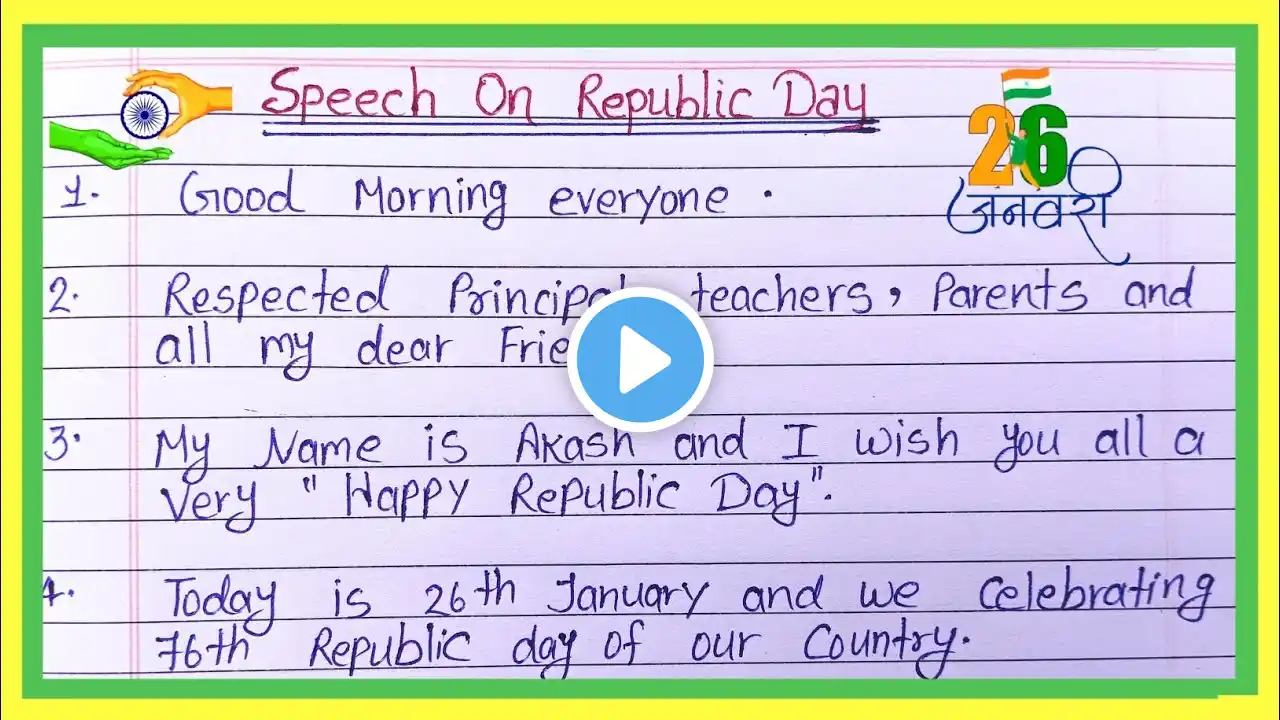 Speech On Republic Day
26
जनवरी
1. Good Morning everyone.
2. Respected Principal teachers, Parents and
all my dear
3. My Name is Akash and I wish you all a
very "Happy Republic Day".
4. Today is 26th January and we celebrating
76th Republic day of our Country.